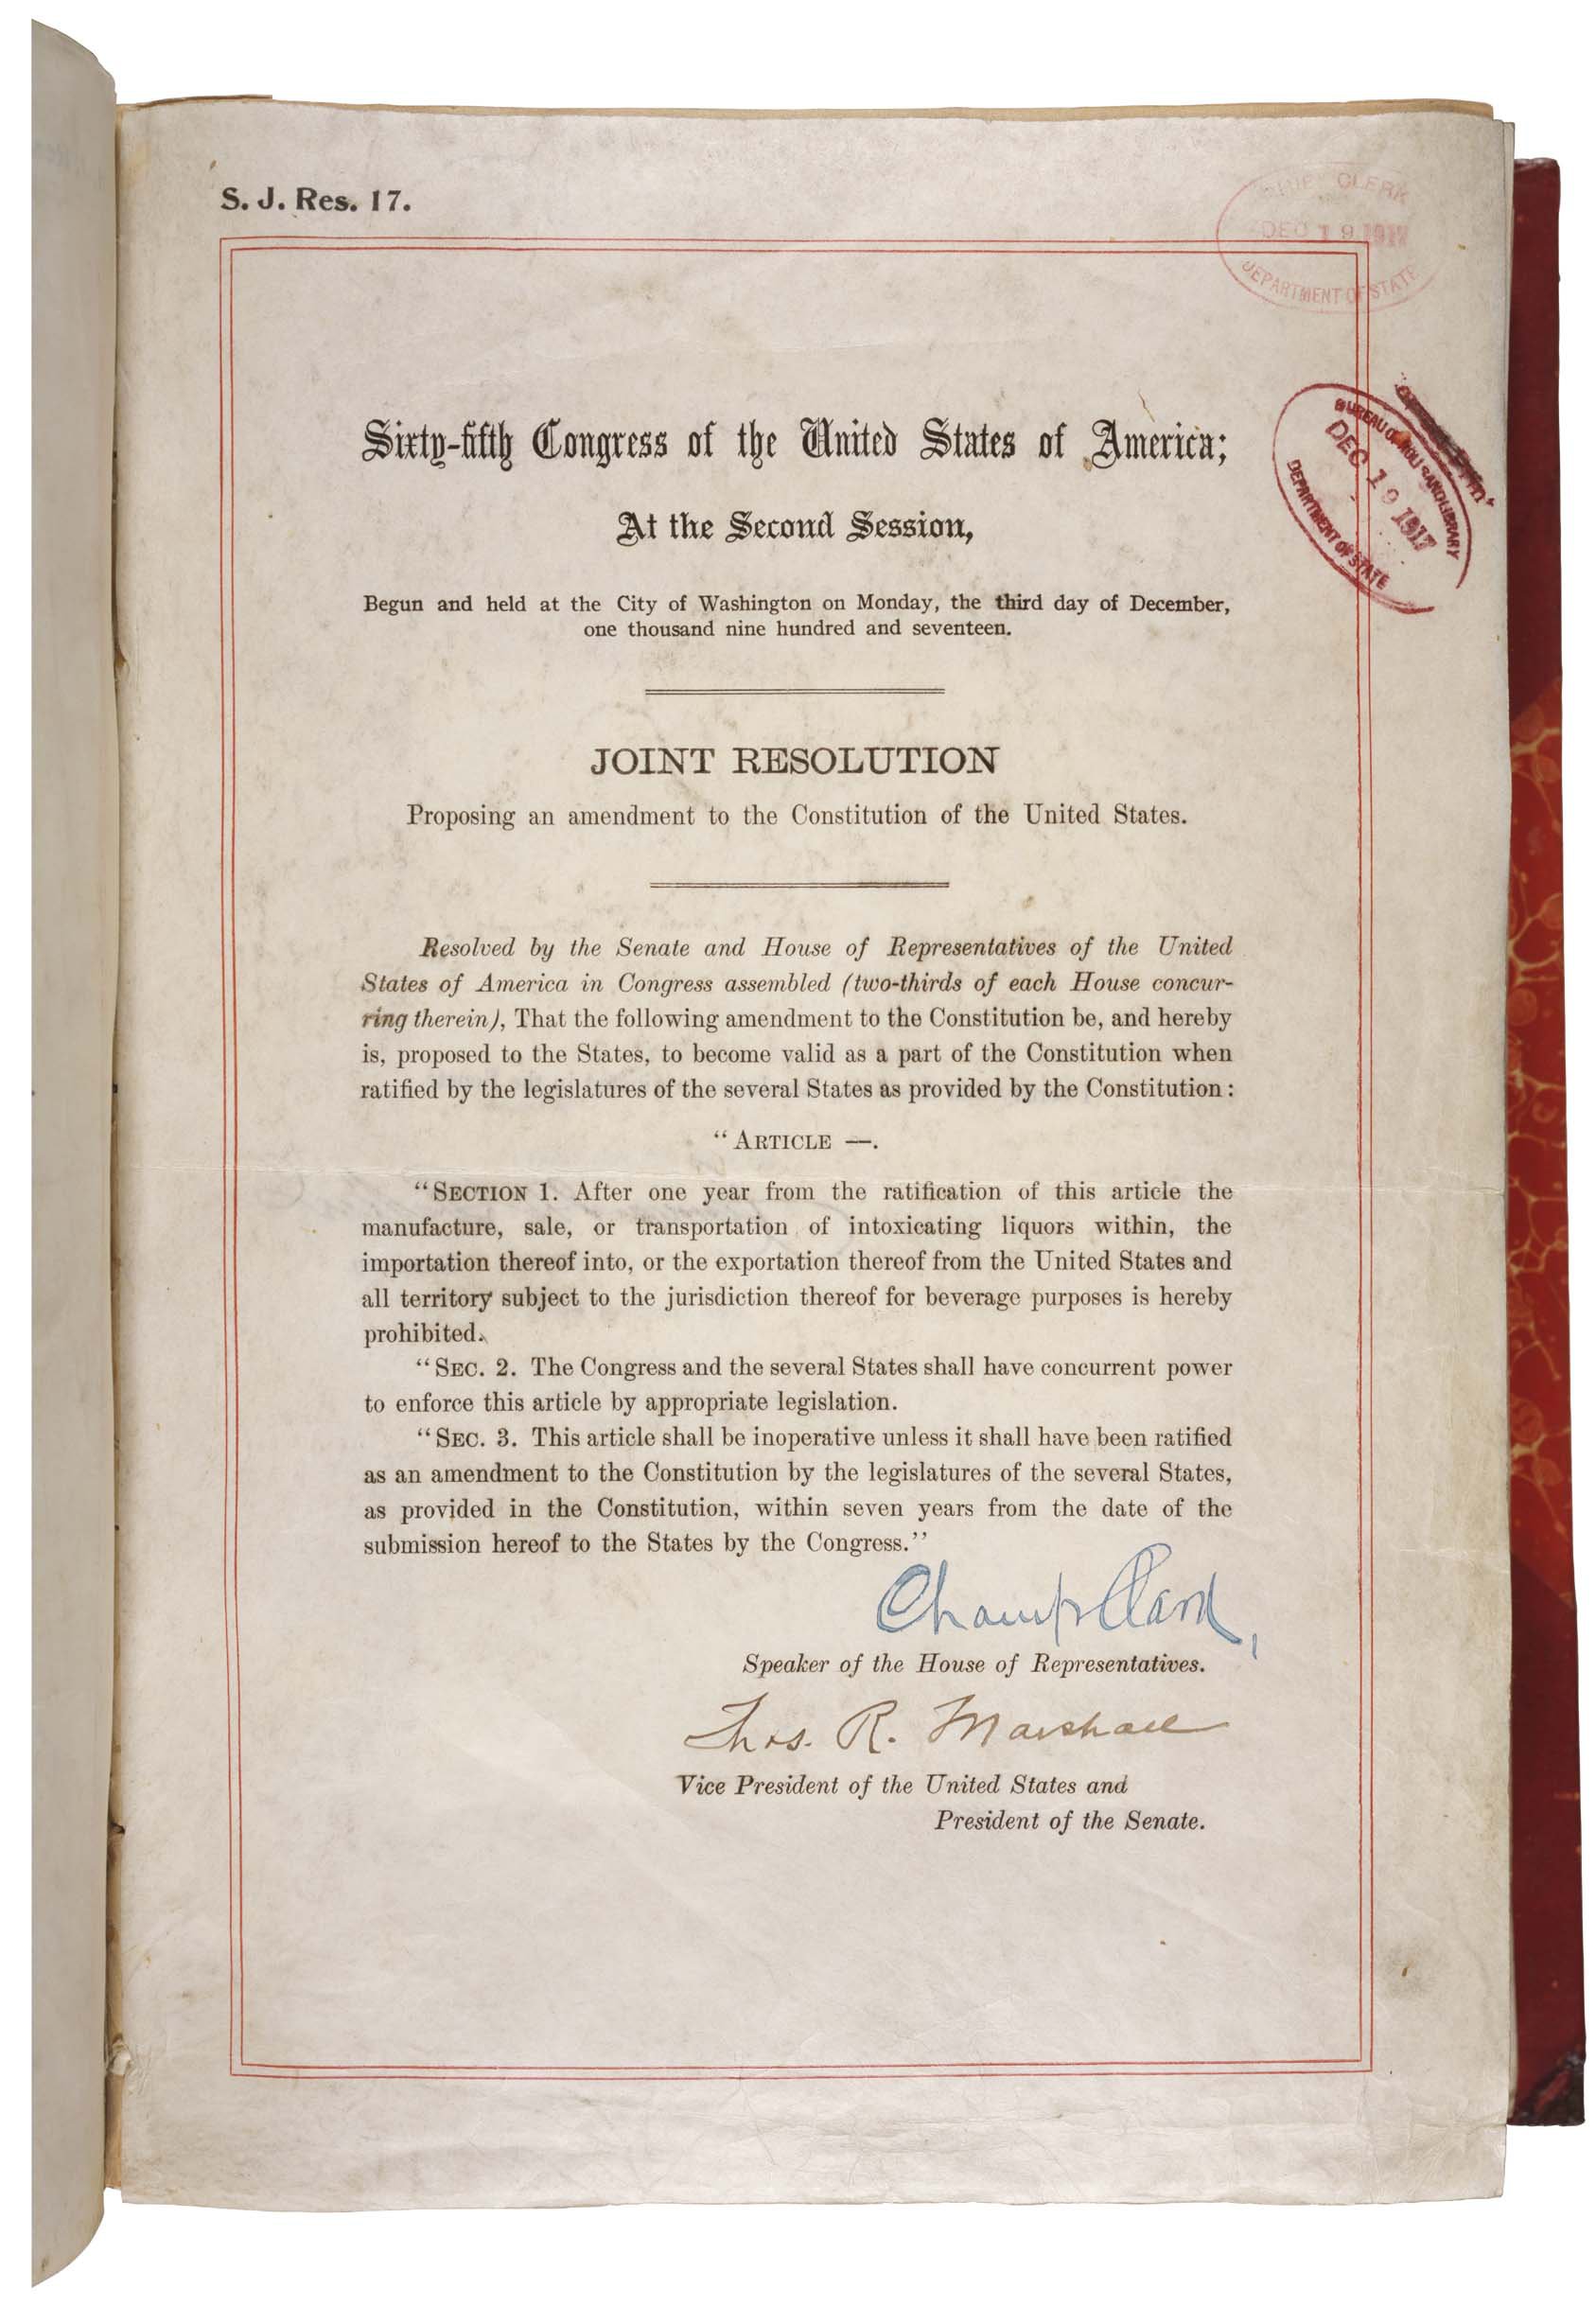 S. J. Res. 17.
CLERK
DEC 19 1917
DEPARTMENT OF STATE
BUREAU OF ROLLS AND LIBRARY
DEC 19 1917
DEPARTMENT OF STATE
Sixty-fifth Congress of the United States of America;
At the Second Session,
Begun and held at the City of Washington on Monday, the third day of December,
one thousand nine hundred and seventeen.
JOINT RESOLUTION
Proposing an amendment to the Constitution of the United States.
Resolved by the Senate and House of Representatives of the United
States of America in Congress assembled (two-thirds of each House concur-
ring therein), That the following amendment to the Constitution be, and hereby
is, proposed to the States, to become valid as a part of the Constitution when
ratified by the legislatures of the several States as provided by the Constitution:
“ARTICLE —.
“SECTION 1. After one year from the ratification of this article the
manufacture, sale, or transportation of intoxicating liquors within, the
importation thereof into, or the exportation thereof from the United States and
all territory subject to the jurisdiction thereof for beverage purposes is hereby
prohibited.
“SEC. 2. The Congress and the several States shall have concurrent power
to enforce this article by appropriate legislation.
“SEC. 3. This article shall be inoperative unless it shall have been ratified
as an amendment to the Constitution by the legislatures of the several States,
as provided in the Constitution, within seven years from the date of the
submission hereof to the States by the Congress.”
Champ Clark,
Speaker of the House of Representatives.
Thos. R. Marshall
Vice President of the United States and
President of the Senate.